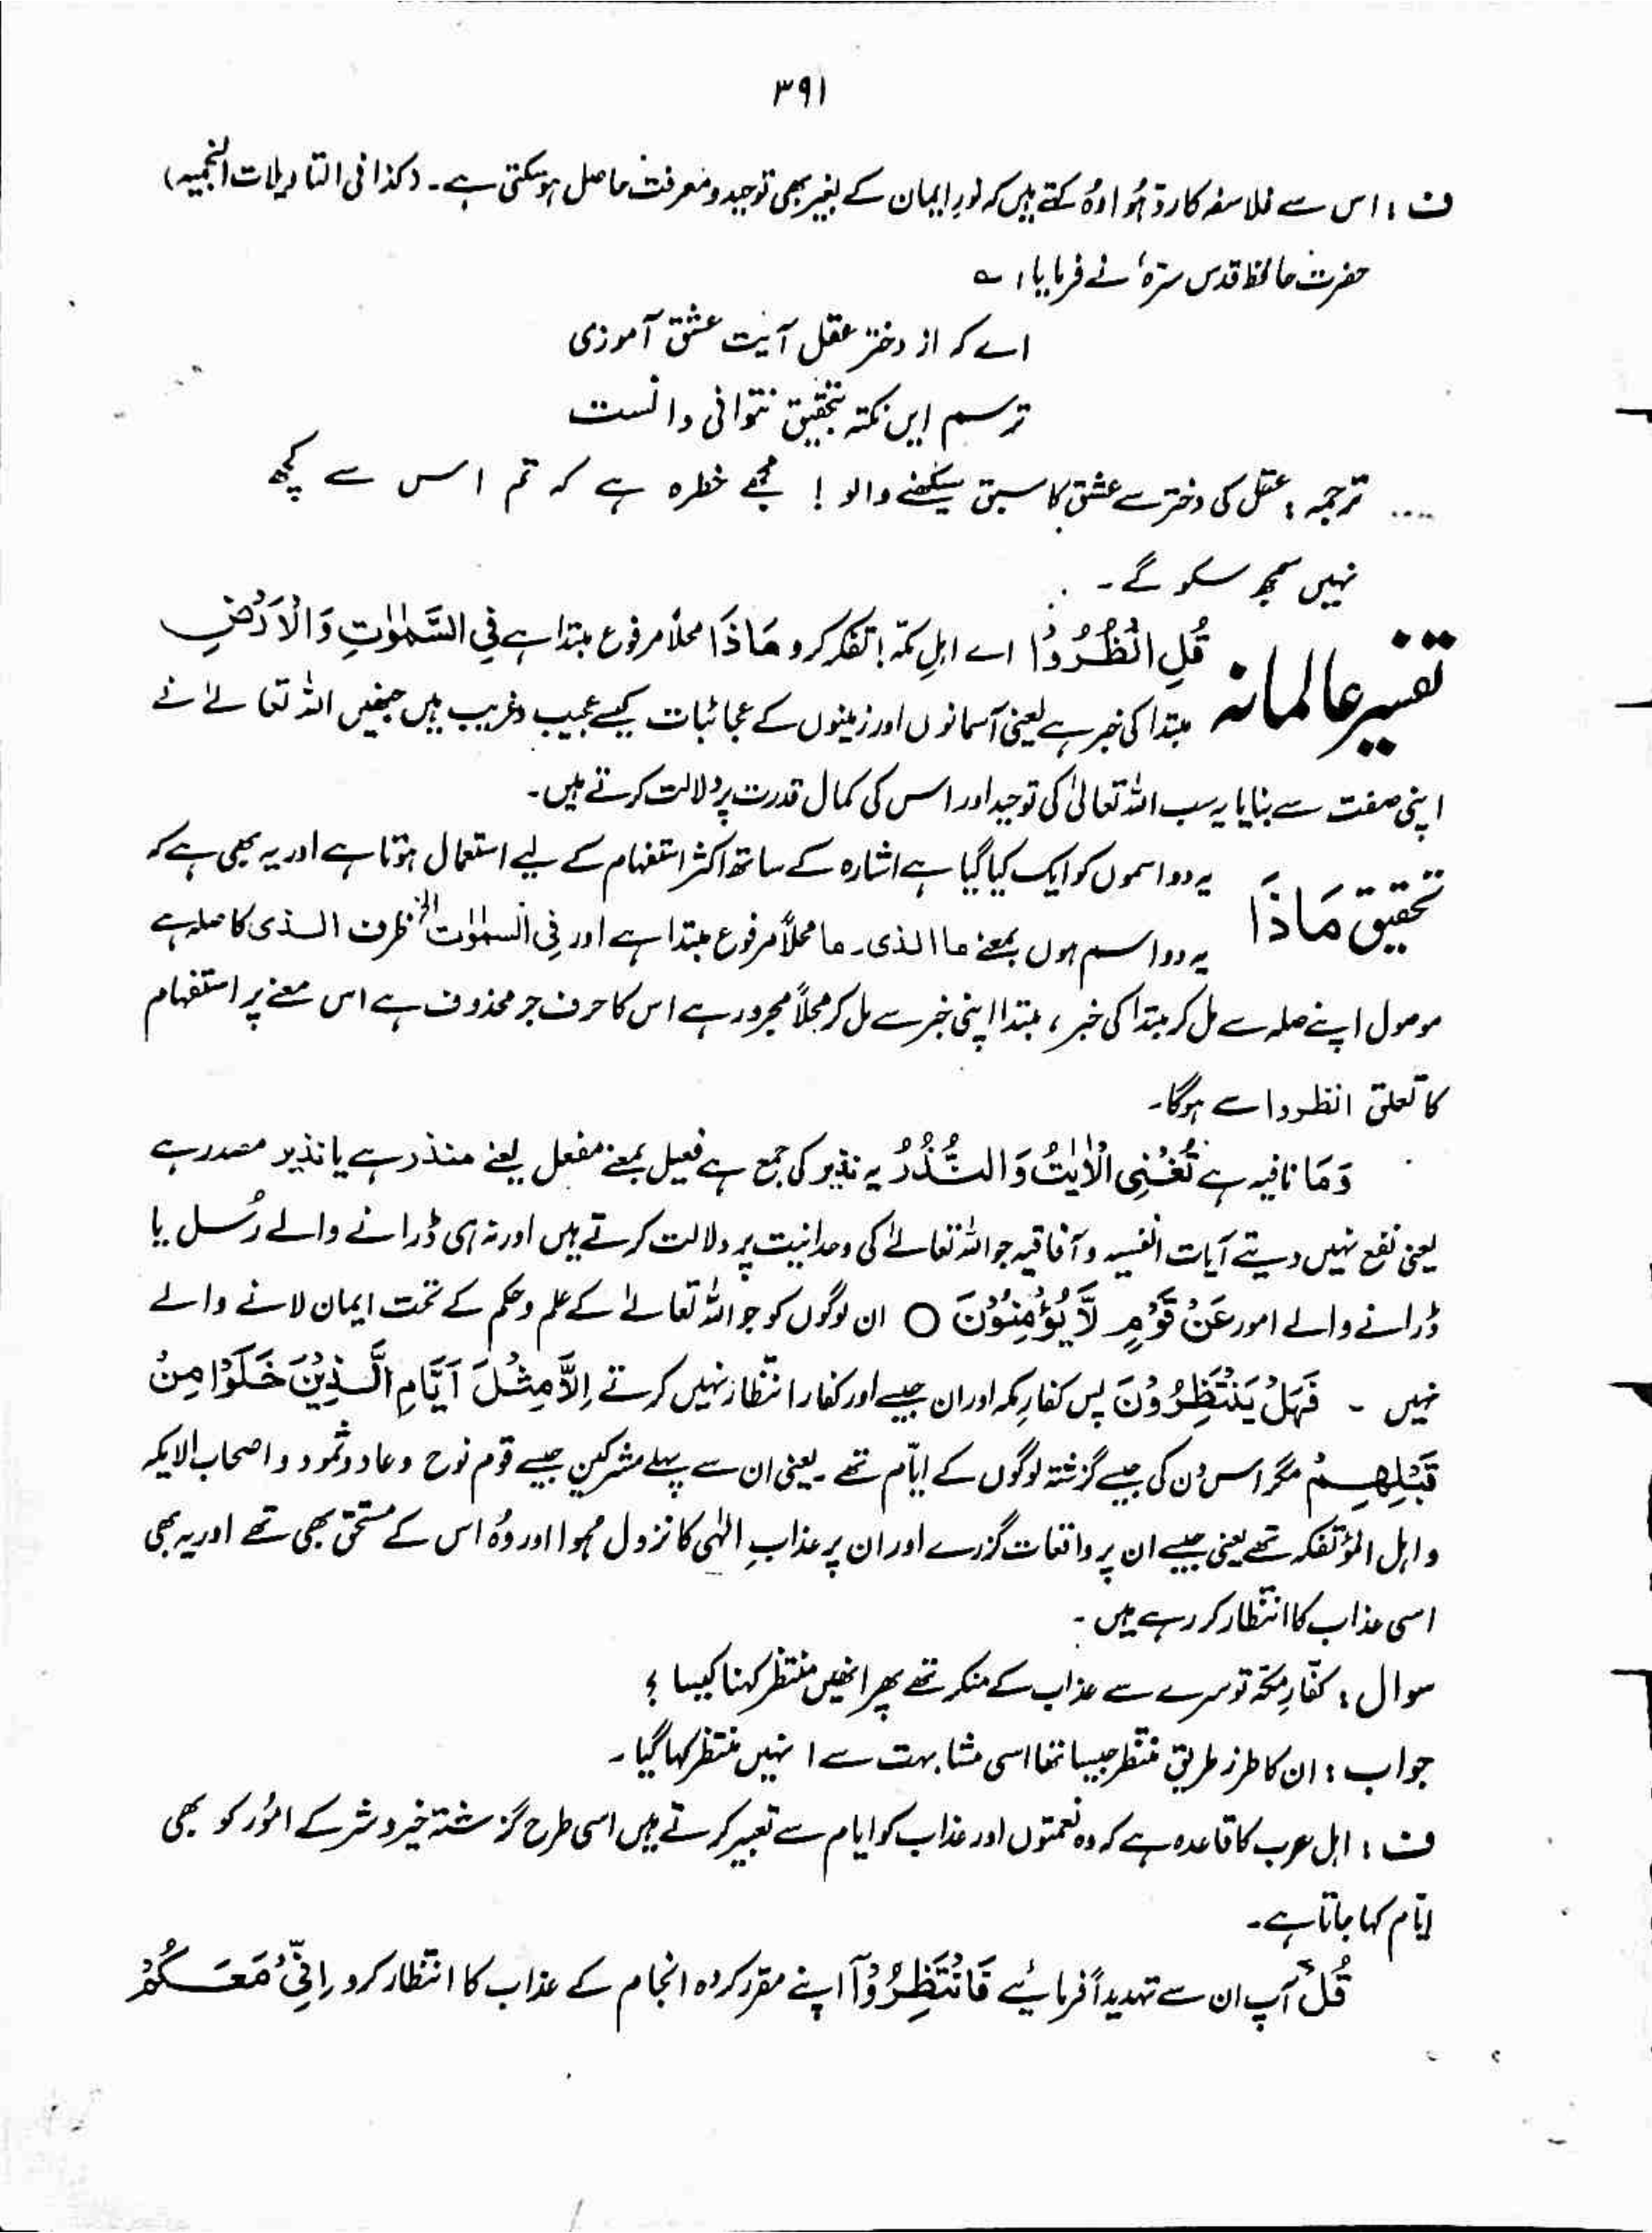 ۳۹۱
ف : اس سے فلاسفہ کا رد ہُوا وہُ کہتے ہیں کہ نورِ ایمان کے بغیر بھی توحید و معرفت حاصل ہو سکتی ہے۔ (کذا فی التاویلات النجمیہ)
حضرت حافظ قدس سرّہٗ نے فرمایا ؎
اے کہ از دختر عقل آیت عشق آموزی
ترسم ایں نکتہ بتحقیق نتوانی دانست
.... ترجمہ : عقل کی دختر سے عشق کا سبق سیکھنے والو ! مجھے خطرہ ہے کہ تم اس سے کچھ
نہیں سمجھ سکو گے۔
تفسیر عالمانہ قُلِ انْظُرُوْا اے اہلِ مکّہ ! تفکر کرو مَاذَا محلاً مرفوع مبتدا ہے فِی السَّمٰوٰتِ وَالْاَرْضِ
مبتدا کی خبر ہے یعنی آسمانوں اور زمینوں کے عجائبات کیسے عجیب و غریب ہیں جنھیں اللہ تعالےٰ نے
اپنی صفت سے بنایا یہ سب اللہ تعالیٰ کی توحید اور اس کی کمال قدرت پر دلالت کرتے ہیں۔
تحقیق مَاذَا یہ دو اسموں کو ایک کیا گیا ہے اشارہ کے ساتھ اکثر استفہام کے لیے استعمال ہوتا ہے اور یہ بھی ہے کہ
یہ دو اسم ہوں بمعنے ما الذی۔ ما محلاً مرفوع مبتدا ہے اور فِی السمٰوٰت الخ ظرف الذی کا صلہ ہے
موصول اپنے صلہ سے مل کر مبتدا کی خبر ، مبتدا اپنی خبر سے مل کر محلاً مجرور ہے اس کا حرف جر محذوف ہے اس معنے پر استفہام
کا تعلق انظروا سے ہوگا۔
وَمَا نافیہ ہے تُغْنِی الْاٰیٰتُ وَالنُّذُرُ یہ نذیر کی جمع ہے فعیل بمعنے مفعل یعنے منذر ہے یا نذیر مصدر ہے
یعنی نفع نہیں دیتے آیات انفسیہ و آفاقیہ جو اللہ تعالےٰ کی وحدانیت پر دلالت کرتے ہیں اور نہ ہی ڈرانے والے رُسل یا
ڈرانے والے امور عَنْ قَوْمٍ لَّا یُؤْمِنُوْنَ ○ ان لوگوں کو جو اللہ تعالےٰ کے علم و حکم کے تحت ایمان لانے والے
نہیں ۔ فَهَلْ یَنْتَظِرُوْنَ پس کفارِ مکہ اور ان جیسے اور کفار انتظار نہیں کرتے اِلَّا مِثْلَ اَیَّامِ الَّذِیْنَ خَلَوْا مِنْ
قَبْلِهِمْ مگر اس دُن کی جیسے گزشتہ لوگوں کے ایّام تھے ۔ یعنی ان سے پہلے مشرکین جیسے قوم نوح و عاد و ثمود و اصحاب الایکہ
و اہل المؤتفکہ تھے یعنی جیسے ان پر واقعات گزرے اور ان پر عذابِ الٰہی کا نزول ہوا اور وُہ اس کے مستحق بھی تھے اور یہ بھی
اسی عذاب کا انتظار کر رہے ہیں ۔
سوال : کفّارِ مکّہ تو سرے سے عذاب کے منکر تھے پھر انھیں منتظر کہنا کیسا ؟
جواب : ان کا طرز طریق منتظر جیسا تھا اسی مشابہت سے انہیں منتظر کہا گیا ۔
ف : اہل عرب کا قاعدہ ہے کہ وہ نعمتوں اور عذاب کو ایام سے تعبیر کرتے ہیں اسی طرح گزشتہ خیر و شر کے امُور کو بھی
ایّام کہا جاتا ہے۔
قُلْ آپ ان سے تہدیداً فرمائیے فَانْتَظِرُوْٓا اپنے مقرر کردہ انجام کے عذاب کا انتظار کرو اِنِّیْ مَعَكُمْ